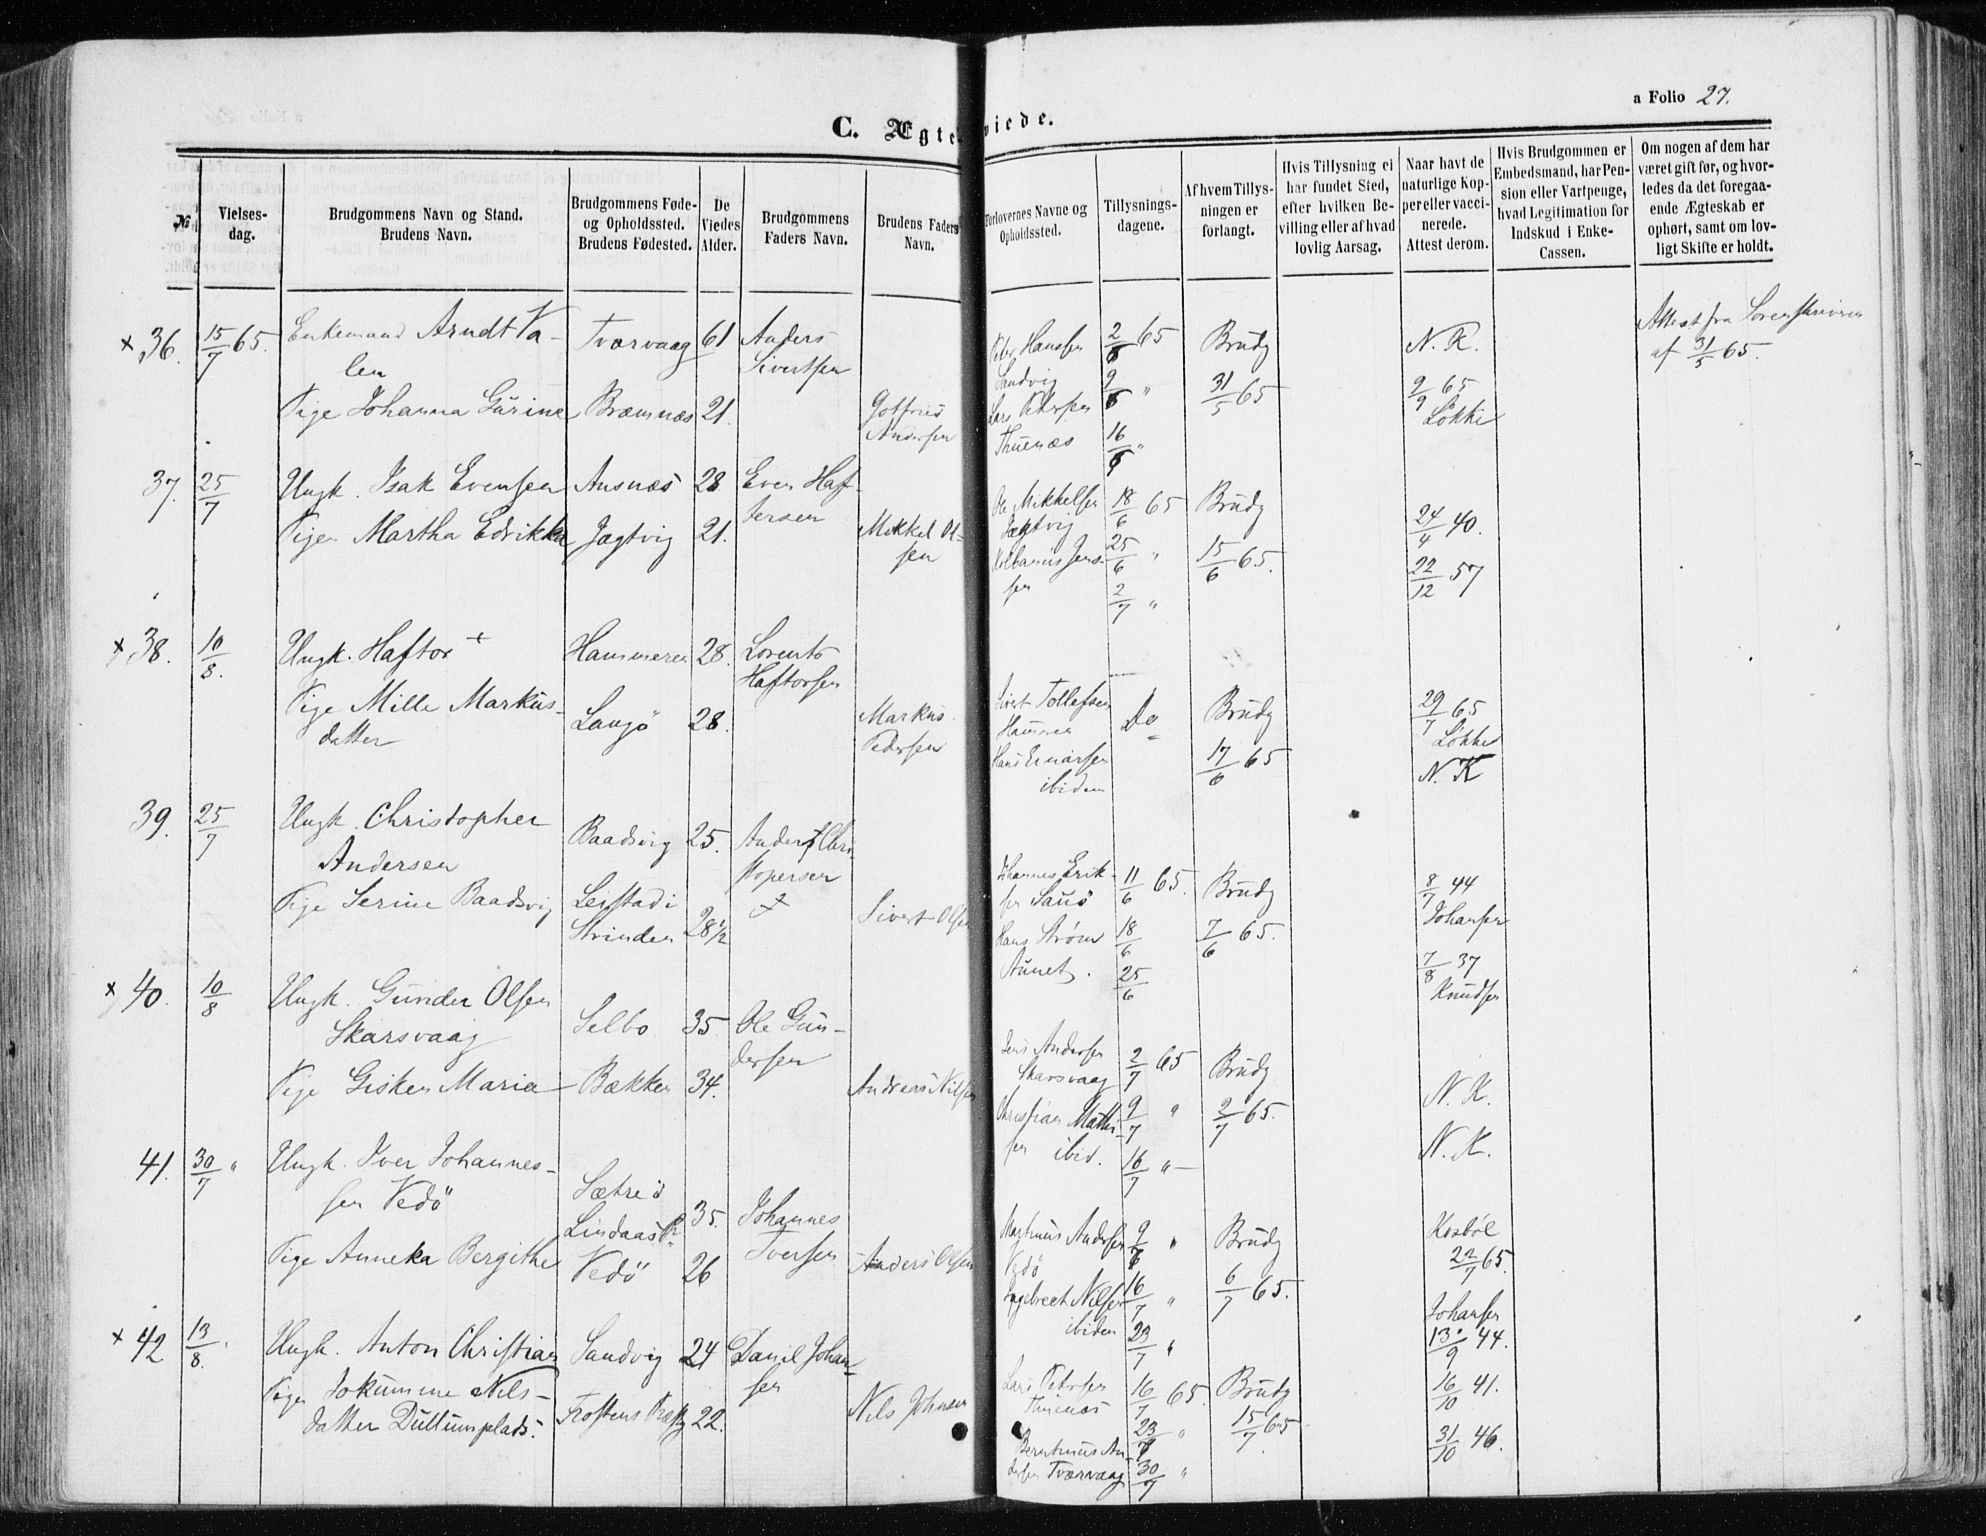 a Folio 27.
C. Ægteviede.
№
Vielses-
dag.
Brudgommens Navn og Stand.
Brudens Navn.
Brudgommens Føde-
og Opholdssted.
Brudens Fødested.
De
Viedes
Alder.
Brudgommens
Faders Navn.
Brudens Faders
Navn.
Forlovernes Navne og
Opholdssted.
Tillysnings-
dagene.
Af hvem Tillys-
ningen er
forlangt.
Hvis Tillysning ei
har fundet Sted,
efter hvilken Be-
villing eller af hvad
lovlig Aarsag.
Naar havt de
naturlige Kop-
per eller vacci-
nerede.
Attest derom.
Hvis Brudgommen er
Embedsmand, har Pen-
sion eller Vartpenge,
hvad Legitimation for
Indskud i Enke-
Cassen.
Om nogen af dem har
været gift før, og hvor-
ledes da det foregaa-
ende Ægteskab er
ophørt, samt om lov-
ligt Skifte er holdt.
x 36. 15/7 65. Enkemand Arndt Va- Tværvaag 61 Anders
len Sivertsen
Pige Johanna Gurine Bremnæs 21. Gotfried
Andersen
Peder Hansen 2/6 65 Brudg N. K. Attest fra Sorenskriveren
af 31/5 65.
Sandvig 9/6 " 31/5 65 9/9 65
Lars Petersen Løkke
Thuenæs 16/6 "
37. 25/7 Ungk. Isak Evensen Ausnæs 28 Even Haf-
tersen
Pigen Martha Edrikka Jægtvig 21. Mikkel Ol-
sen
Ole Mikkelsen 18/6 65 Brudg
Jægtvig 24/4 40.
Kolbanus Jens- 25/6 " 15/6 65.
sen 2/7 " 22/12 57
x 38. 10/8. Ungk. Haftor + Hammeren 28. Lorents
Haftorsen
Pige Mille Markus- Langö 28. Markus
datter Pedersen
Sivert Tollefsen Do Brudg 29/7 65
Hammer Løkke
Hans Einarsen 17/6 65
ibidem N. K
39. 25/7 Ungk. Christopher Baadsvig 25. Anders Chri-
Andersen stopersen
Pige Serine Baadsvig Leistad i 28 1/2 Sivert Olsen
Strinden
Johannes Erik- 11/6 65. Brudg 8/7 44
sen Sauö Johansen
Hans Strøm 18/6 7/6 65.
Aunet. 25/6 7/8 37
Knudsen
x 40. 10/8 Ungk. Gunder Olsen Selbo 35. Ole Gun-
Skarsvaag dersen
Pige Gisken Maria Bækken 34. Andreas Nilsen
Jens Andersen 2/7 65 Brudg
Skarsvaag N. K.
Christian Mathi- 9/7 " 2/7 65.
sen ibid. 16/7 " N. K.
41. 30/7 " Ungk. Iver Johannes- Sætre i
sen Vedö Lindaas P. 35. Johannes
Iversen
Pige Anneka Bergithe Vedö 26 Anders Olsen
Martinus Andersen 9/7 " Brudg
Vedö 22/7 65.
Ingebrect Nilsen 16/7 " 6/7 65.
ibidem 23/7 " Johansen
13/9 44.
x 42 13/8. Ungk. Anton Christian Sandvig 24 Daniel Johan-
sen
Pigen Jokumine Nils- Frostens Præstg 22. Nils Johnsen
datter Dullumplads.
Lars Petersen 16/7 65. Brudg 16/10 41.
Thuenæs 23/7 " 15/7 65
Berntinus An- 31/10 46.
dersen Tværvaag 30/7 "